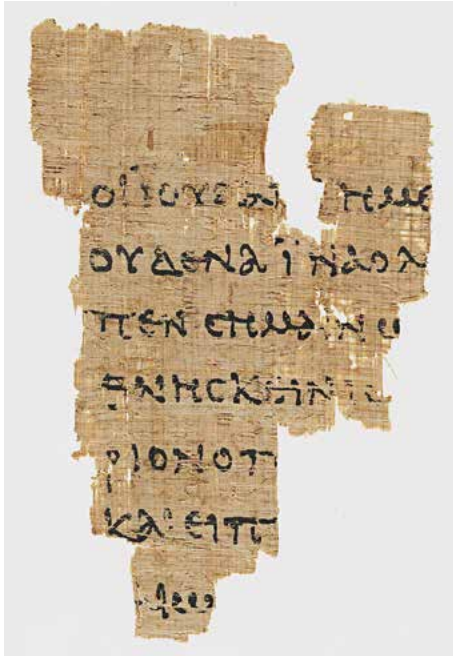 ΟΙΪΟΥΔΑΙ ΗΜΕ
ΟΥΔΕΝΑΪΝΑΟΛ
ΠΕΝCΗΜΑΙΝΩ
ΘΝΗCΚΕΙΝΙC
ΡΙΟΝΟΠ
ΚΑΙΕΙΠ
ΑΙΩ